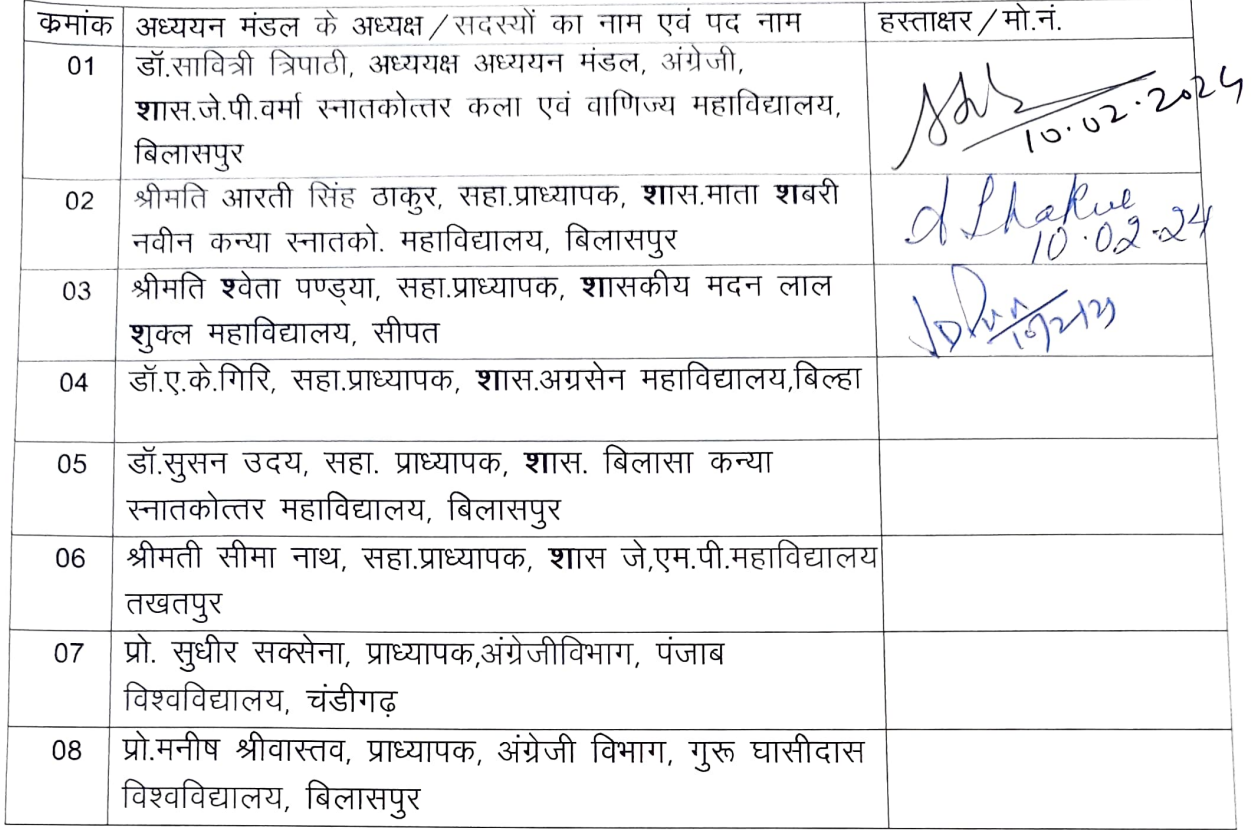 क्रमांक अध्ययन मंडल के अध्यक्ष/सदस्यों का नाम एवं पद नाम हस्ताक्षर/मो.नं.
01 डॉ.सावित्री त्रिपाठी, अध्ययक्ष अध्ययन मंडल, अंग्रेजी,
शास.जे.पी.वर्मा स्नातकोत्तर कला एवं वाणिज्य महाविद्यालय,
10.02.2024
बिलासपुर
02 श्रीमति आरती सिंह ठाकुर, सहा.प्राध्यापक, शास.माता शबरी
नवीन कन्या स्नातको. महाविद्यालय, बिलासपुर
10.02.24
03 श्रीमति श्वेता पण्ड्या, सहा.प्राध्यापक, शासकीय मदन लाल
शुक्ल महाविद्यालय, सीपत
04 डॉ.ए.के.गिरि, सहा.प्राध्यापक, शास.अग्रसेन महाविद्यालय,बिल्हा
05 डॉ.सुसन उदय, सहा. प्राध्यापक, शास. बिलासा कन्या
स्नातकोत्तर महाविद्यालय, बिलासपुर
06 श्रीमती सीमा नाथ, सहा.प्राध्यापक, शास जे,एम.पी.महाविद्यालय
तखतपुर
07 प्रो. सुधीर सक्सेना, प्राध्यापक,अंग्रेजीविभाग, पंजाब
विश्वविद्यालय, चंडीगढ़
08 प्रो.मनीष श्रीवास्तव, प्राध्यापक, अंग्रेजी विभाग, गुरू घासीदास
विश्वविद्यालय, बिलासपुर